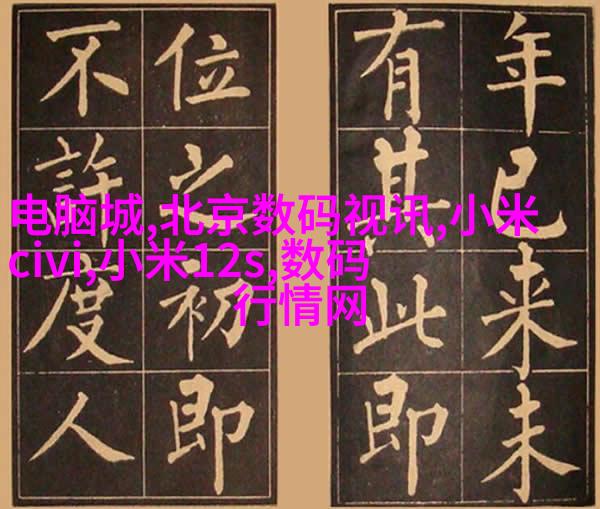 年已来未
有其此即
位之初即
不許度人
电脑城,北京数码视讯,小米
civi,小米12s,数码
行情网